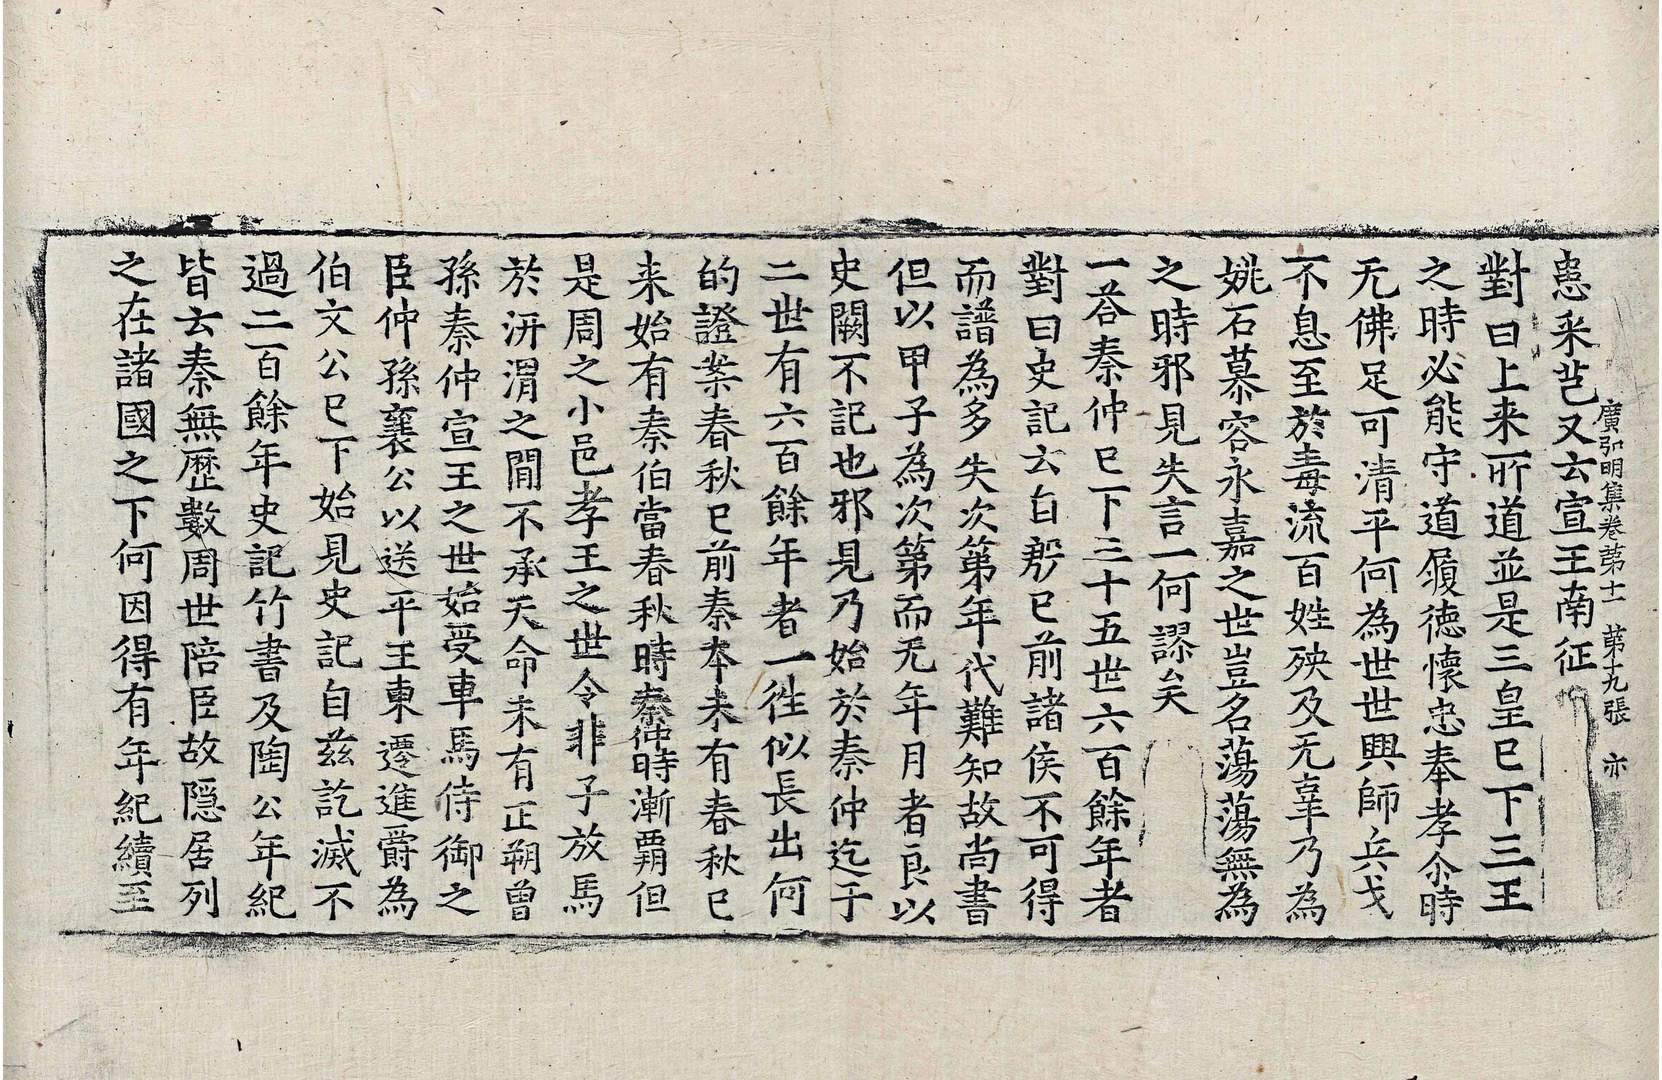 恚采芑又云宣王南征
廣弘明集卷第十一 第十九張 亦
對曰上来所道並是三皇已下三王
之時必能守道履德懷忠奉孝尒時
无佛足可清平何為世世興師兵戈
不息至於毒流百姓殃及无辜乃為
姚石慕容永嘉之世豈名蕩蕩無為
之時邪見失言一何謬矣
一荅秦仲已下三十五世六百餘年者
對曰史記云自殷已前諸侯不可得
而譜為多失次第年代難知故尚書
但以甲子為次第而无年月者良以
史闕不記也邪見乃始於秦仲迄于
二世有六百餘年者一徃似長出何
的證案春秋已前秦本未有春秋已
来始有秦伯當春秋時秦仲時漸覇但
是周之小邑孝王之世令非子放馬
於汧渭之閒不承天命未有正朔曾
孫秦仲宣王之世始受車馬侍御之
臣仲孫襄公以送平王東遷進爵為
伯文公已下始見史記自茲訖滅不
過二百餘年史記竹書及陶公年紀
皆云秦無歷數周世陪臣故隱居列
之在諸國之下何因得有年紀續至